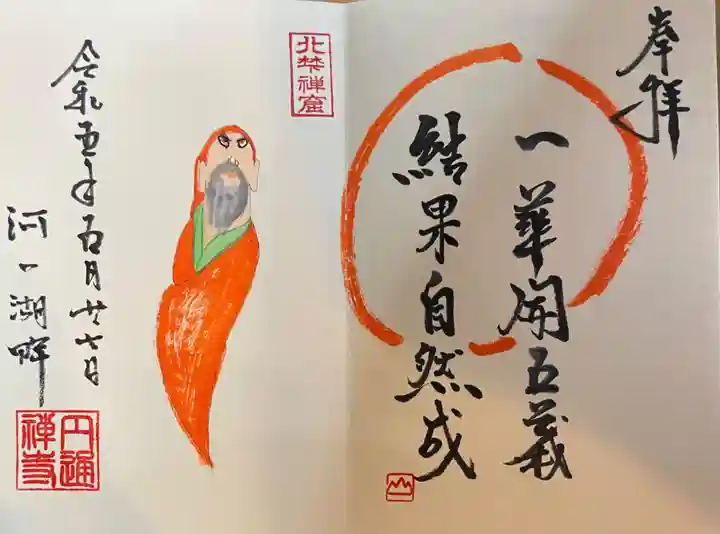 奉拝
一華開五葉
結果自然成
北梵禅窟
令和五年五月廿七日
河口湖畔
円通
禅寺